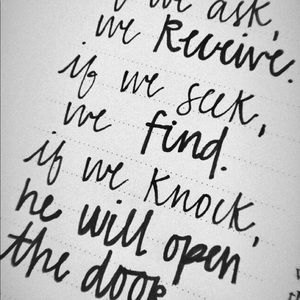 we ask,
we Receive.
if we seek,
we find.
if we knock,
he will open
the door